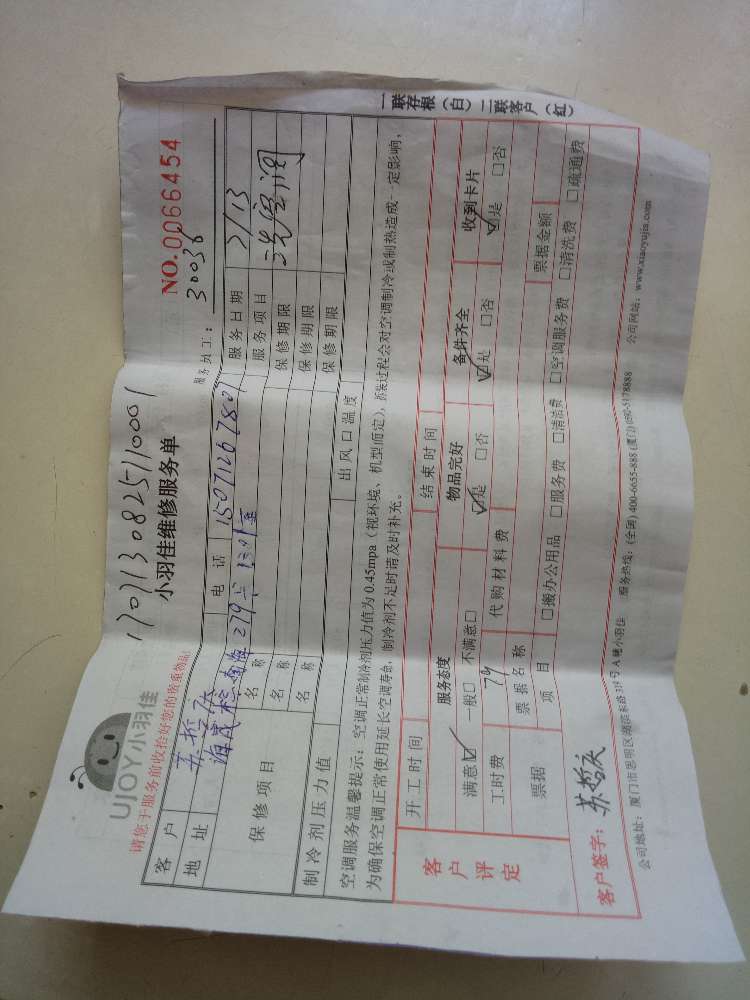 UJOY小羽佳
小羽佳维修服务单
NO.0066454
请您于服务前收拾好您的贵重物品!
服务员工: 30036
客户 电话 服务日期 2/13
地址 服务项目 洗空调
保修项目 名称 保修期限
名称 保修期限
名称 保修期限
制冷剂压力值 出风口温度
空调服务温馨提示:空调正常制冷剂压力值为0.45mpa(视环境、机型而定),拆装过程会对空调制冷或制热造成一定影响,
为确保空调正常使用延长空调寿命,制冷剂不足时请及时补充。
客户评定
开工时间 结束时间
服务态度 物品完好 备件齐全 收到卡片
满意☑ 一般□ 不满意□ ☑是 □否 ☑是 □否 ☑是 □否
工时费 79 代购材料费
票据 票据名称 票据金额
项目 □搬办公用品 □服务费 □清洁费 □空调服务费 □清洗费 □疏通费
客户签字:
公司地址:厦门市思明区 号A幢小羽佳 服务热线:(全国)400-6655-888(厦门)0592-5178888 公司网站:www.xiaoyujia.com
一联存根(白)二联客户(红)